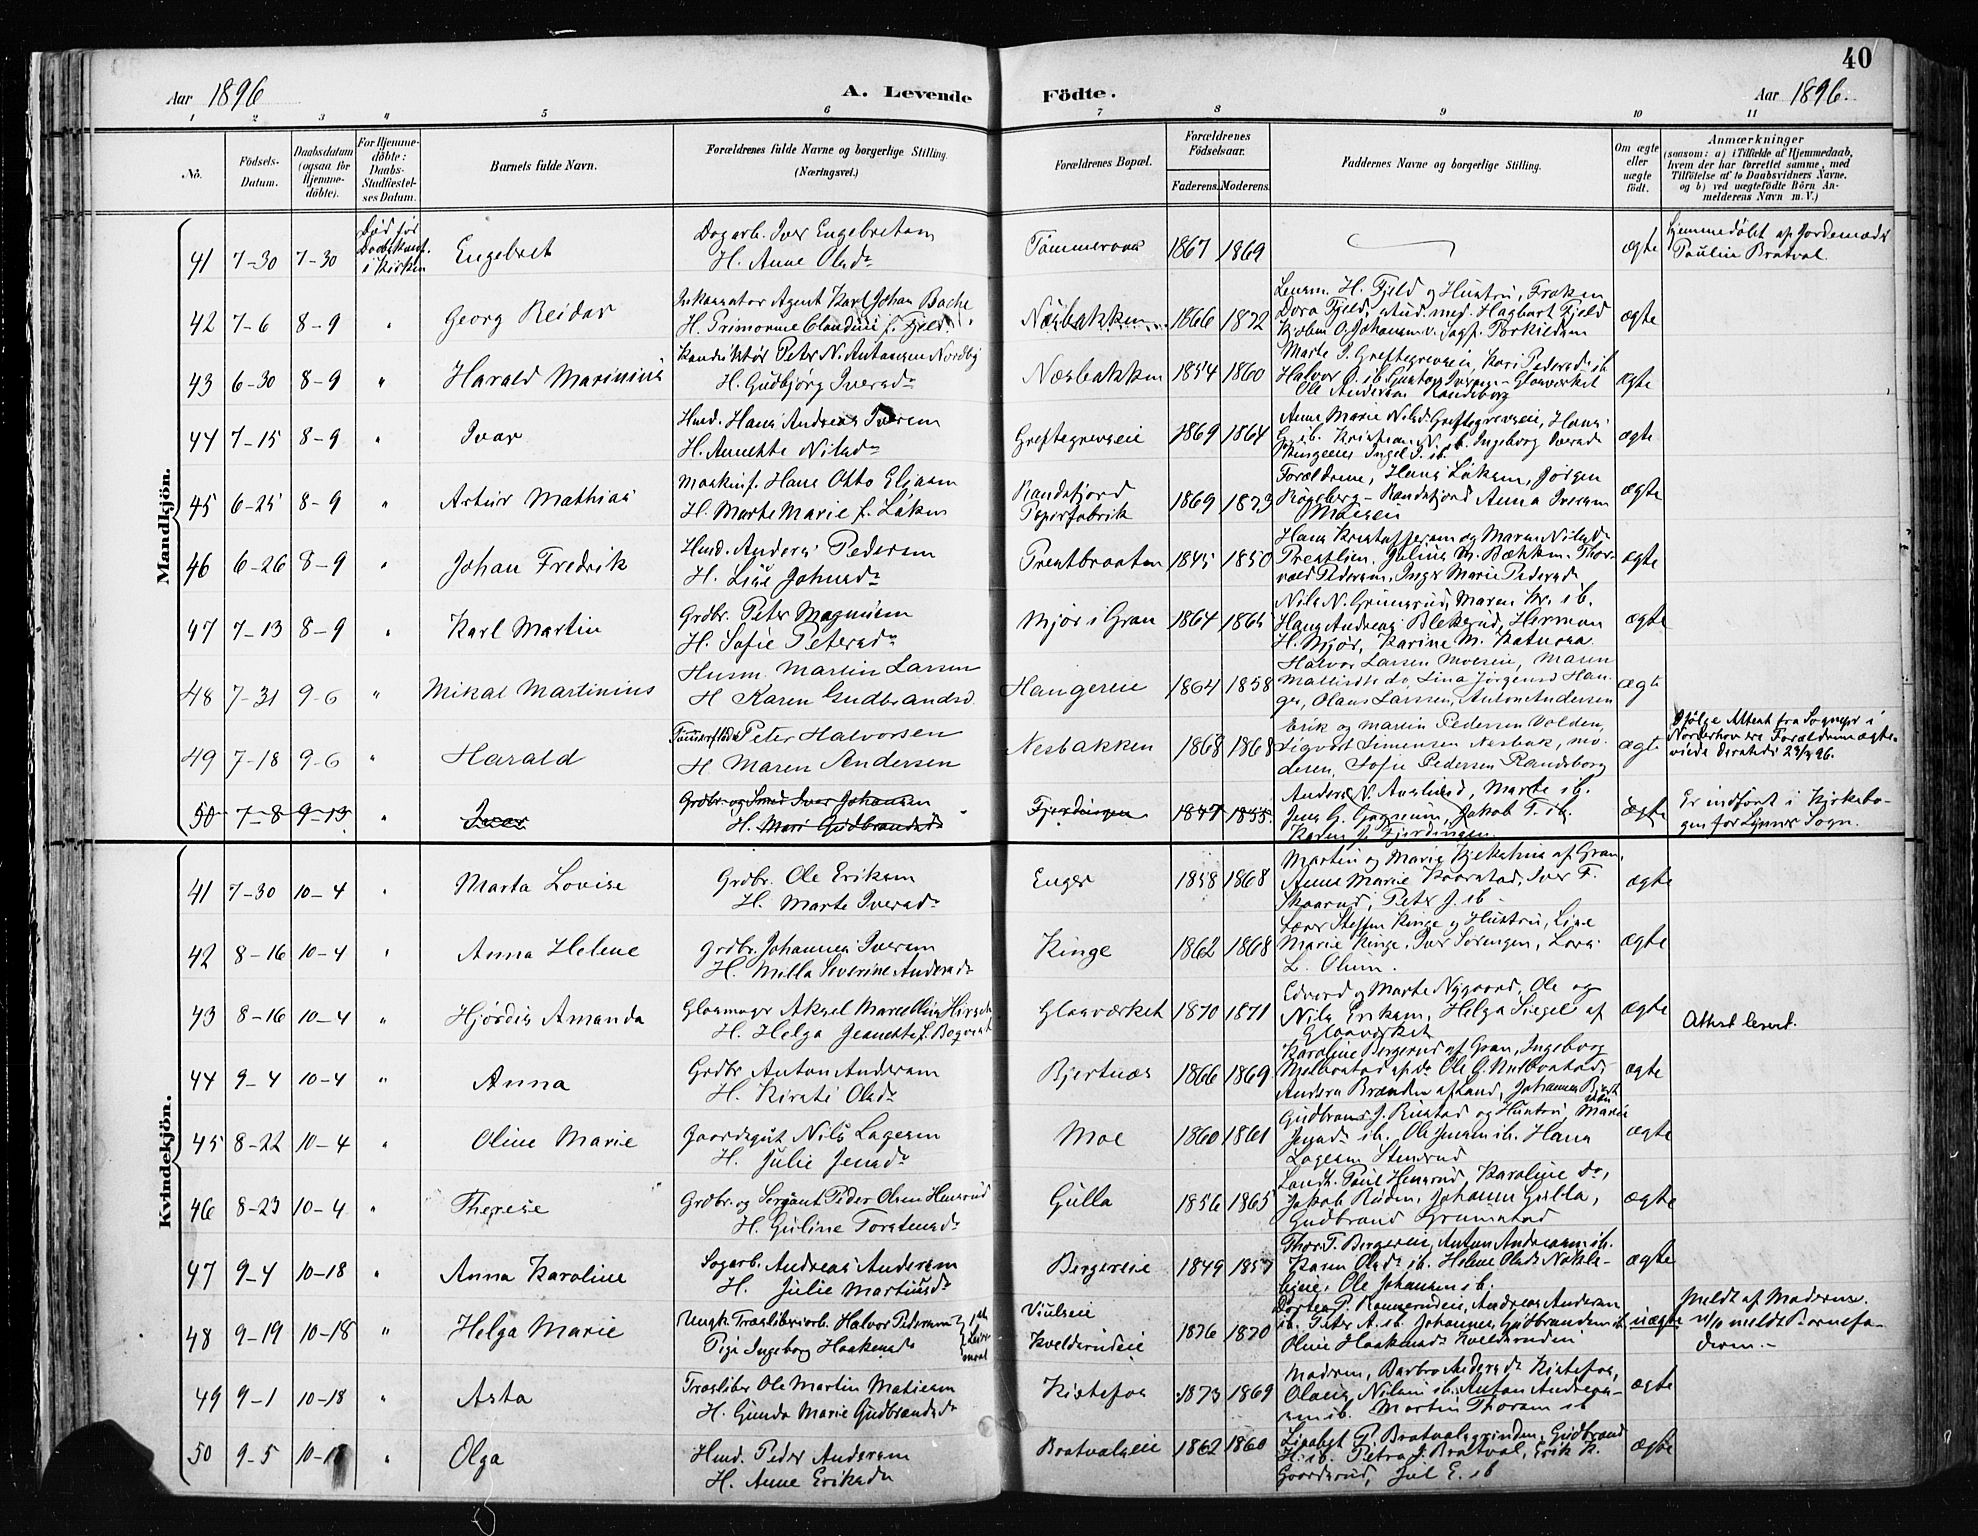 40
Aar 1896
A. Levende Födte.
Aar 1896.
1 2 3 4 5 6 7 8 9 10 11
No.
Födsels-Datum.
Daabsdatum (ogsaa for Hjemme-döbte).
For Hjemme-döbte: Daabs-Stadfæstelses Datum.
Barnets fulde Navn.
Forældrenes fulde Navne og borgerlige Stilling. (Næringsvei.)
Forældrenes Bopæl.
Forældrenes Födselsaar.
Faderens. Moderens.
Faddernes Navne og borgerlige Stilling.
Om ægte eller uægte födt.
Anmærkninger
(saasom: a) i Tilfælde af Hjemmedaab, hvem der har forrettet samme, med Tilföielse af to Daabsvidners Navne. og b) ved uægtefödte Börn Anmelderens Navn m. V.)
Mandkjön.
41 7-30 7-30 Død før Daabs i Kirken Engebret Dagarb. Iver Engebretsen H. Anne Olsdr 1867 1869 ægte Hjemmedøbt af Jordemoder Pauline Bratval.
42 7-6 8-9 " Georg Reidar Agent Karl Johan Bache H. f. Fjeld Næsbakken 1866 1872 Lensm. H. Fjeld og Hustru, Frøken Dora Fjeld, stud. med. Hagbart Fjeld ægte
43 6-30 8-9 " Harald Marinius Peter N. Antonsen Nordby H. Gudbjörg Iversdr Næsbakken 1854 1860 Marte I. Greftegrevseie, Kari Pedersd. ib. Glasværket Ole Andersen Randsborg ægte
44 7-15 8-9 " Ivar Husm. Hans Andreas Iversen H. Annette Nilsdr Greftegrevseie 1869 1864 Anne Marie Nilsd. Greftegrevseie, Hans G. ib. Kristian N. ib. Ingeborg Iversd. ægte
45 6-25 8-9 " Artur Mathias Maskinf. Hans Otto Eliasen H. Marte Marie f. Løken Randsfjord Papirfabrik 1869 1873 Forældrene, Hans Løken, Jørgen Røgeberg - Randsfjord Anna Iversen Moeseie ægte
46 6-26 8-9 " Johan Fredrik Husm. Anders Pedersen H. Lise Johnsdr Prestbraaten 1845 1850 Hans Kristoffersen og Maren Nilsdr Prestlien, Julius M. Bækken. Thorvald Pedersen, Inger Marie Pedersd. ægte
47 7-13 8-9 " Karl Martin Grdbr. Peter Magnusen H. Sofie Petersdr Mjør i Gran 1864 1865 Nils N. Grinnsrud, Maren Kr. ib. Hans Andreas Blekerud, Herman H. Mjør, Karine M. ægte
48 7-31 9-6 " Mikal Martinius Husm. Martin Larsen H Karen Gudbrandsd. Haugereie 1864 1858 Halvor Larsen Moeseie, Maren Mathisdtr do, Lina Jørgensd Hauger, Olaus Larsen, Anton Andersen ægte
49 7-18 9-6 " Harald Tømmerfløder Peter Halvorsen H Maren Andersen Nesbakken 1868 1868 Erik og Martin Pedersen Volden, Sigvart Simensen Nesbak, moderen, Sofie Pedersen Randsborg ægte Ifølge Attest fra Sognepr. i Norderhov ere Forældrene ægteviede dersteds 29/3 96.
50 7-8 9-13 " Ivar Grdbr. og Smed Iver Johansen H. Mari Gudbrandsd. Fjordingen 1847 1855 Anders N. Aaslund, Marte ib. Jens G. Gagnum, Jakob T. ib. Karen J. Fjordingen ægte Er indført i Kirkebogen for Lunner Sogn.
Kvindekjön.
41 7-30 10-4 " Marta Lovise Grdbr. Ole Eriksen H. Marte Iversdr Enger 1858 1868 Martin og Marie af Gran, Anne Marie Kaarstad, Iver F. Skaarud, Peter J. ib ægte
42 8-16 10-4 " Anna Helene Grdbr. Johannes Iversen H. Milla Severine Andersdr Kinge 1862 1868 Lærer Steffen Kinge og Hustru, Lise Marie Kinge, Iver Sørengen, Lars L. Olum. ægte
43 8-16 10-4 " Hjördis Amanda Glasmager Aksel Marcellius H. Helga Jeanette f. Glasværket 1870 1871 Edvard og Marte Nygaard, Ole og Nils Eriksen, Helga Siegel af Glasværket ægte Attest levert.
44 9-4 10-4 " Anna Grdbr Anton Andersen H. Kirsti Olsdr Bjertnæs 1866 1869 Karoline Bergerud af Gran, Ingeborg Anders Brænden af Land, Johannes ægte
45 8-22 10-4 " Oline Marie Gaardsgut Nils Lagesen H. Julie Jensdr Moe 1860 1861 Gudbrand J. Rustad og Hustru, Marie Jensdr ib. Ole Jensen ib. Hans Lagesen Stensrud ægte
46 8-23 10-4 " Therese Grdbr. og Sergant Peder Olsen Hensrud H. Guline Torstensdr Gulla 1856 1865 Landh. Paul Hensrud, Karoline do, Jakob Røden, Johannes Gulla, Gudbrand Grimstad ægte
47 9-4 10-18 " Anna Karoline Sagarb. Andreas Andersen H. Julie Martinsdr Bergereie 1849 1857 Thor T. Bergereie, Anton Andreasen ib. Karen Olsdr ib. Helene Olsdr Ole Johansen ib. ægte
48 9-19 10-18 " Helga Marie Ungk. Træsliberiarb. Halvor Pedersen Pige Ingeborg Haakensdr Viulseie Kvelsrudeie 1876 1870 Dortea P. Andreas Andersen ib. Peter A. ib. Johannes Gudbrandsen ib. Oline Haakensdr Kvelsrudeie uægte Meldt af Moderen. meldt Barnefaderen.
49 9-1 10-18 " Asta Træsliber Ole Martin Matiesen H. Gunda Marie Gudbrandsdr Kistefos 1873 1869 Moderen, Barbro Andersdr Kistefos, Olaus Nilsen ib. Anton Andreassen ib. Martin Thoresen ib ægte
50 9-5 10-18 " Olga Husm. Peder Andersen H. Anne Eriksdr Bratvalseie 1862 1860 Lisabet P. Bratvalsgrinden, Gudbrand H. ib. Petra J. Bratval, Erik K. Gaardsrud, Jul E. ib ægte